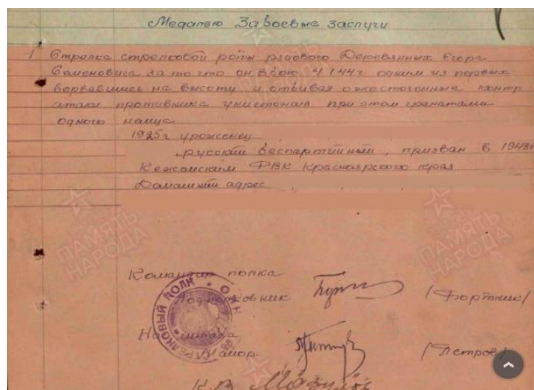 Медалью За боевые заслуги
1 Стрелка стрелковой роты рядового Деревянных Егора
Семеновича за то что он в бою 4.7.44г. одним из первых
ворвавшись на высоту и отбивая ожесточенные контр
атаки противника уничтожил при этом гранатами
одного немца
1925г. урожен
русский беспартийный, призван в 1943г
Кежемским РВК Красноярского края
Домашний адрес
ПАМЯТЬ
НАРОДА
ПАМЯТЬ
НАРОДА
Командир полка
Подполковник /Фортник/
Нач. штаба
Майор /Петров/